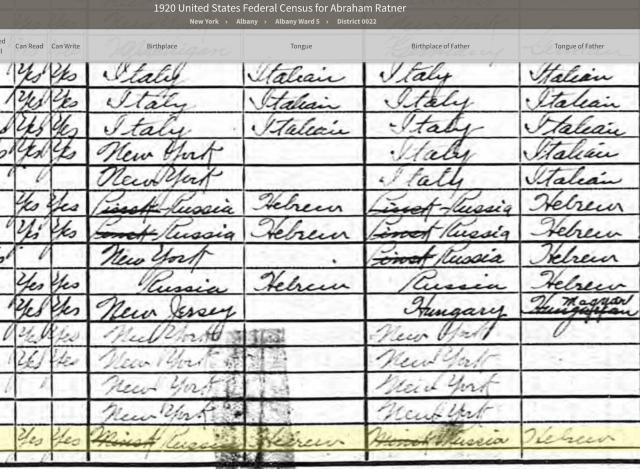 1920 United States Federal Census for Abraham Ratner
New York › Albany › Albany Ward 5 › District 0022
Can Read Can Write Birthplace Tongue Birthplace of Father Tongue of Father
Yes Yes Italy Italian Italy Italian
Yes Yes Italy Italian Italy Italian
Yes Yes Italy Italian Italy Italian
Yes Yes New York Italy Italian
New York Italy Italian
Yes Yes Russia Hebrew Russia Hebrew
Yes Yes Russia Hebrew Russia Hebrew
New York Russia Hebrew
Yes Yes Russia Hebrew Russia Hebrew
Yes Yes New Jersey Hungary Magyar
Yes Yes New York New York
Yes Yes New York New York
New York New York
New York New York
Yes Yes Minsk Russia Hebrew Minsk Russia Hebrew